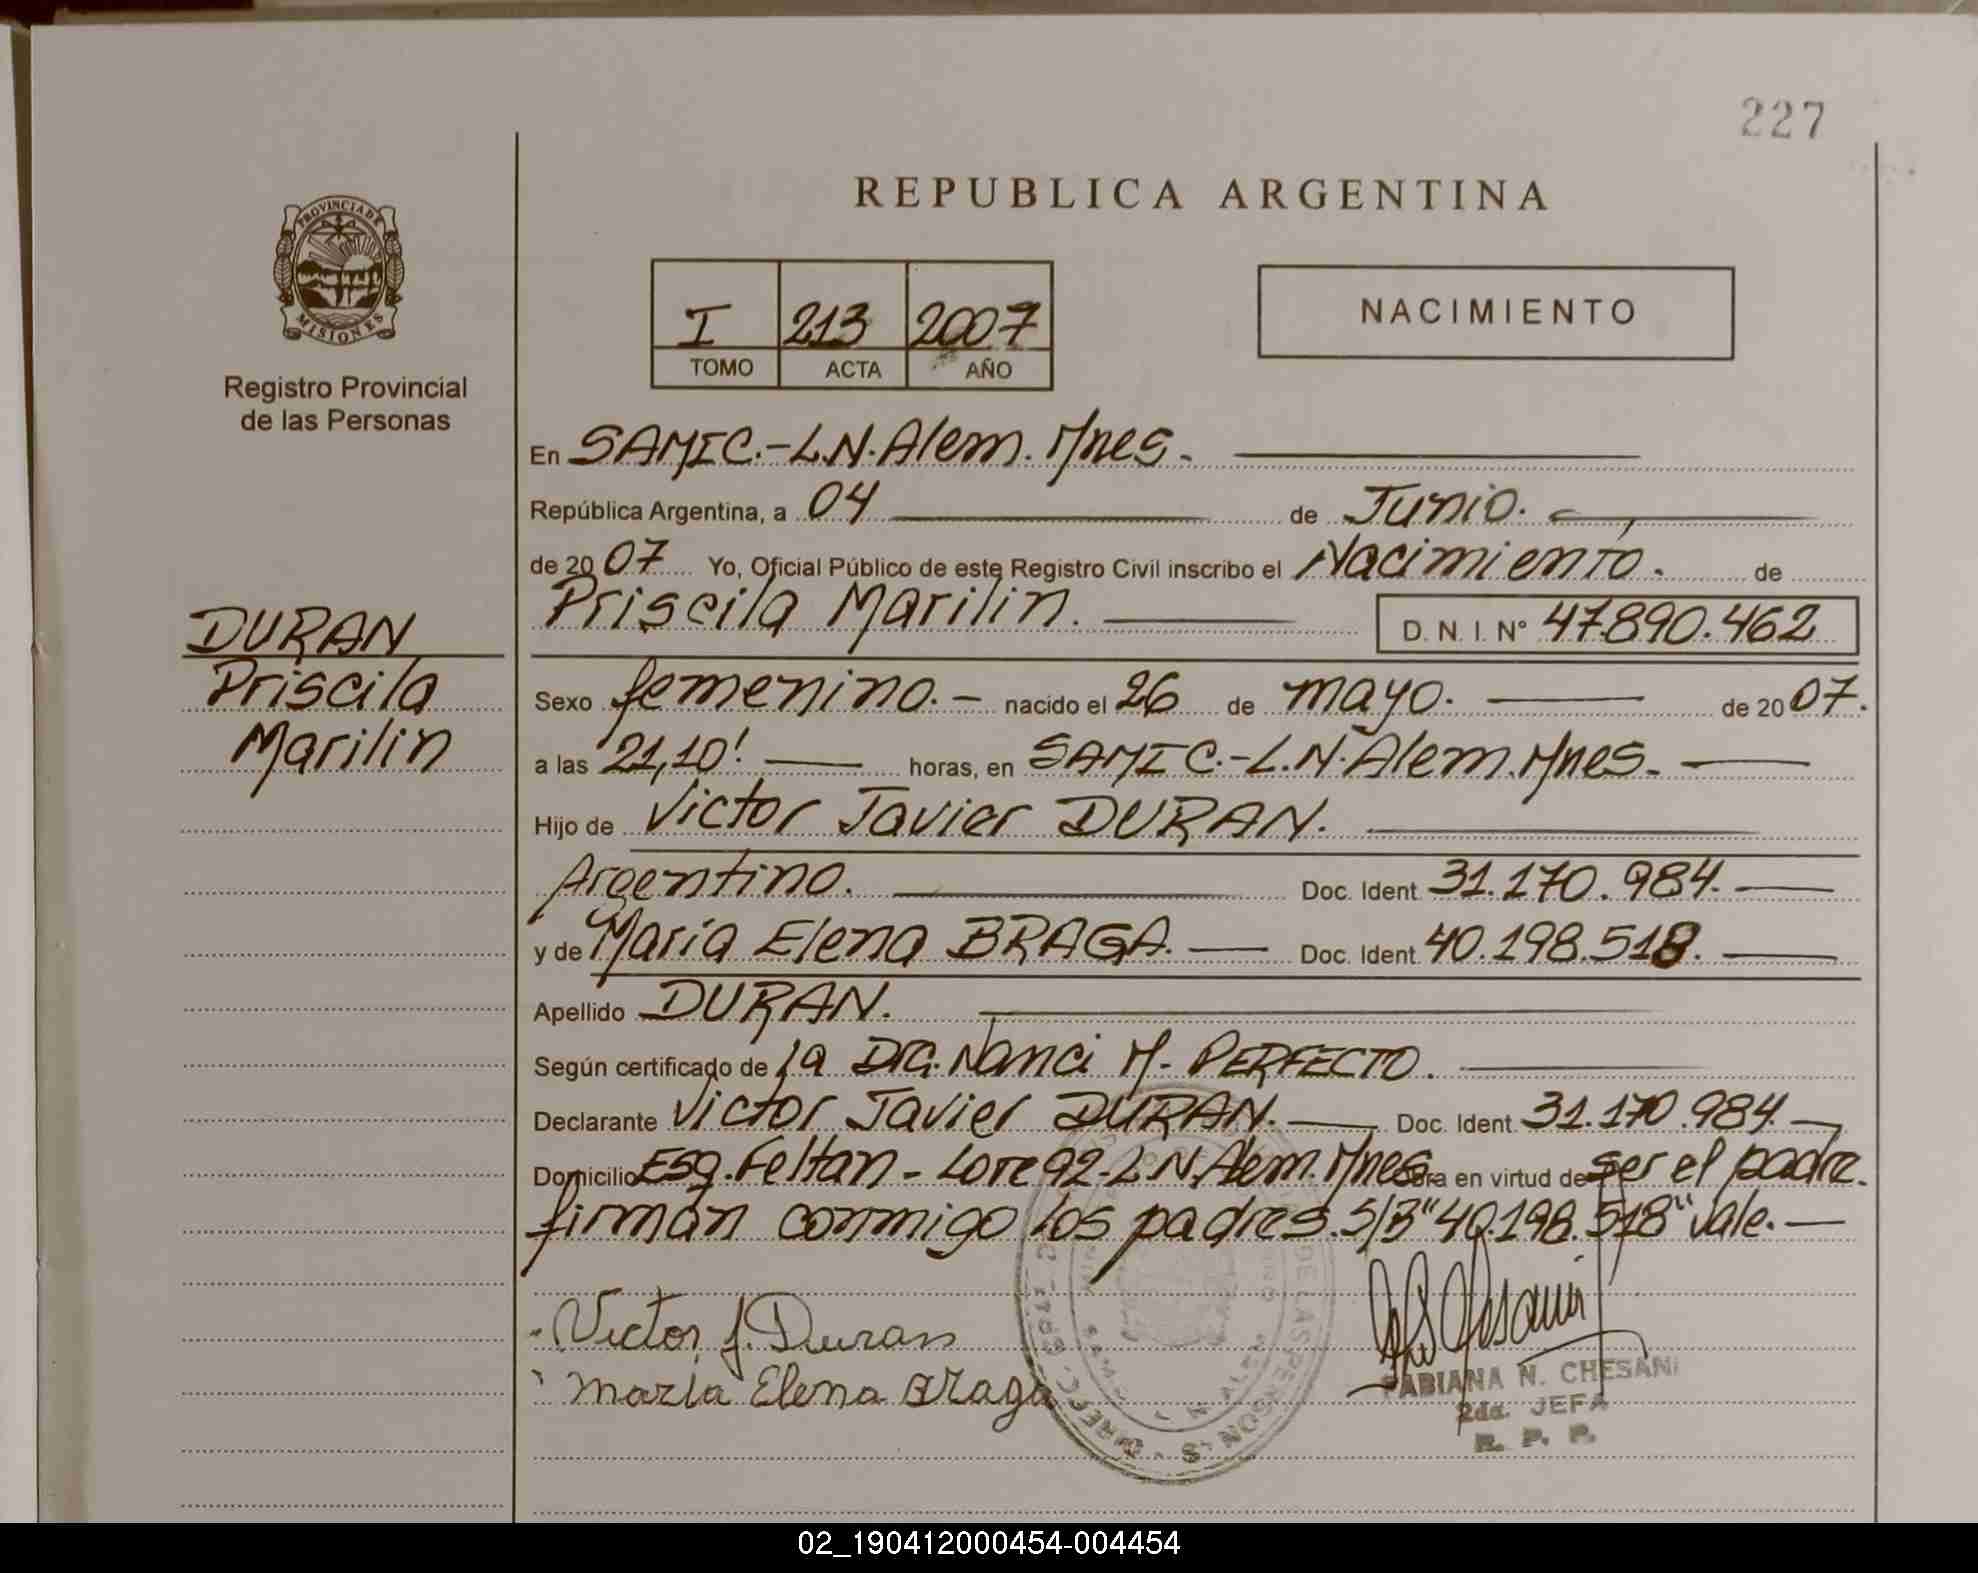 227
PROVINCIA DE
MISIONES
Registro Provincial
de las Personas
DURAN
Priscila
Marilin
REPUBLICA ARGENTINA
I 213 2007
TOMO ACTA AÑO
NACIMIENTO
En SAMIC.-L.N.Alem.Mnes.
República Argentina, a 04 de Junio.
de 2007 Yo, Oficial Público de este Registro Civil inscribo el Nacimiento. de
Priscila Marilin. D. N. I. N° 47.890.462
Sexo femenino.- nacido el 26 de mayo. de 2007.
a las 21,10! horas, en SAMIC.-L.N.Alem.Mnes.
Hijo de Victor Javier DURAN.
Argentino. Doc. Ident. 31.170.984.
y de María Elena BRAGA. Doc. Ident. 40.198.518.
Apellido DURAN.
Según certificado de la Dra. Nanci M. PERFECTO.
Declarante Victor Javier DURAN. Doc. Ident. 31.170.984.
Domicilio Esq. Feltan - Lote 92-L.N.Alem.Mnes en virtud de ser el padre.
firman conmigo los padres. S/B "40.198.518" vale.-
Victor J. Duran
María Elena Braga
FABIANA N. CHESANI
2da. JEFA
R. P. P.
02_190412000454-004454